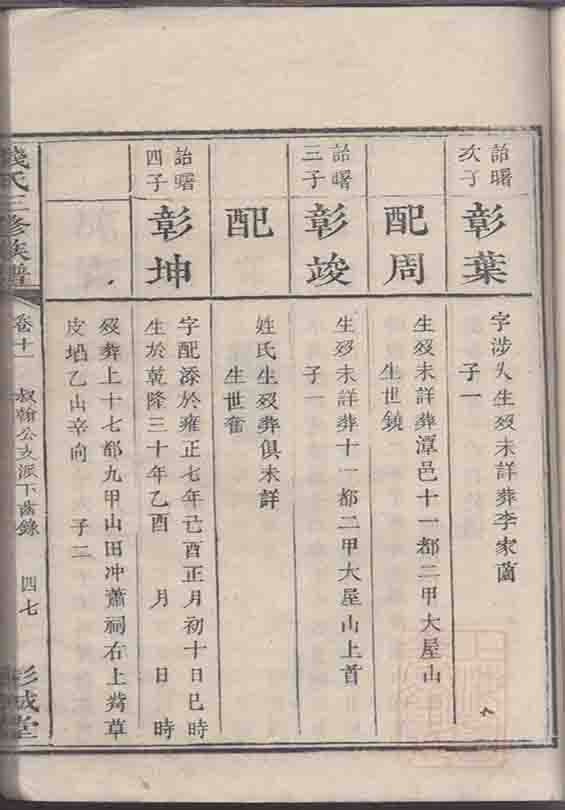 詒曙
次子
彰葉
字涉人生歿未詳葬李家
子一
配周
生歿未詳葬潭邑十一都二甲大屋山
生世鐃
詒曙
三子
彰竣
生歿未詳葬十一都二甲大屋山上首
子一
配
姓氏生歿葬俱未詳
生世奮
詒曙
四子
彰坤
字配添於雍正七年己酉正月初十日巳時
生於乾隆三十年乙酉 月 日 時
歿葬上十七都九甲山田冲蕭祠右上草
皮乙山辛向 子二
錢氏三修族譜
卷十一
叔翰公支派下齒錄
四七
彭城堂